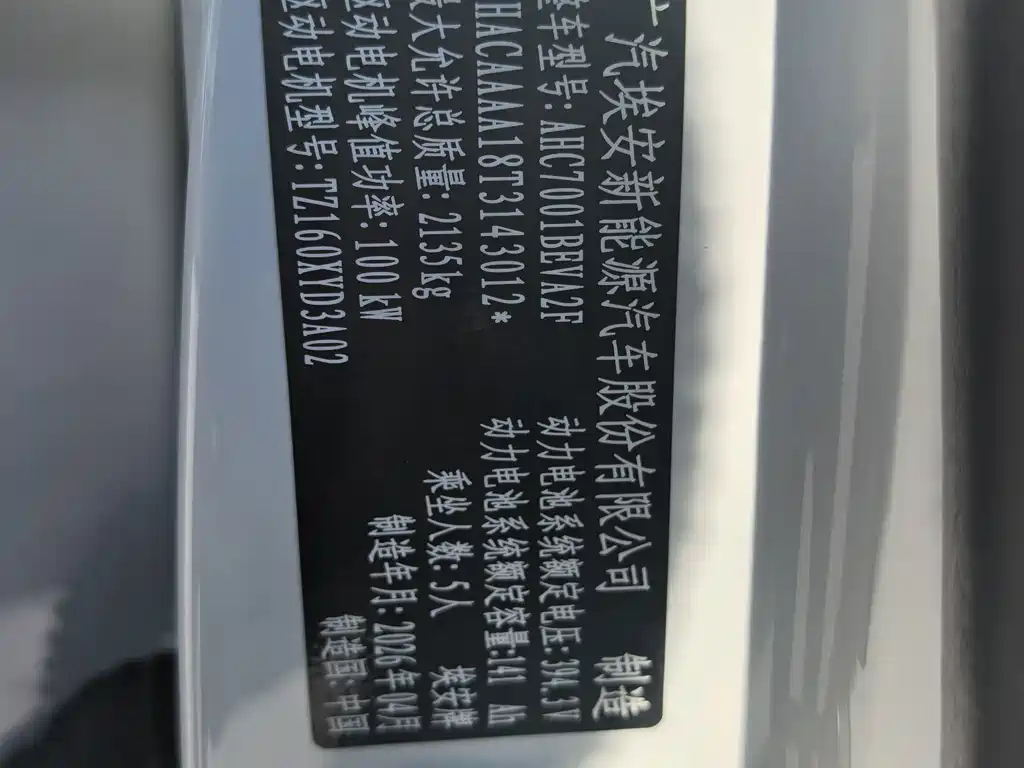 汽埃安新能源汽车股份有限公司 制造
整车型号: AHC7001BEVA2F 动力电池系统额定电压: 314.1V
HACAAAA18T3143012* 动力电池系统额定容量:141 Ah
最大允许总质量: 2135kg 乘坐人数: 5人 埃安牌
驱动电机峰值功率: 100kW 制造年月: 2026年04月
驱动电机型号: TZ160XYD3A02 制造国: 中国